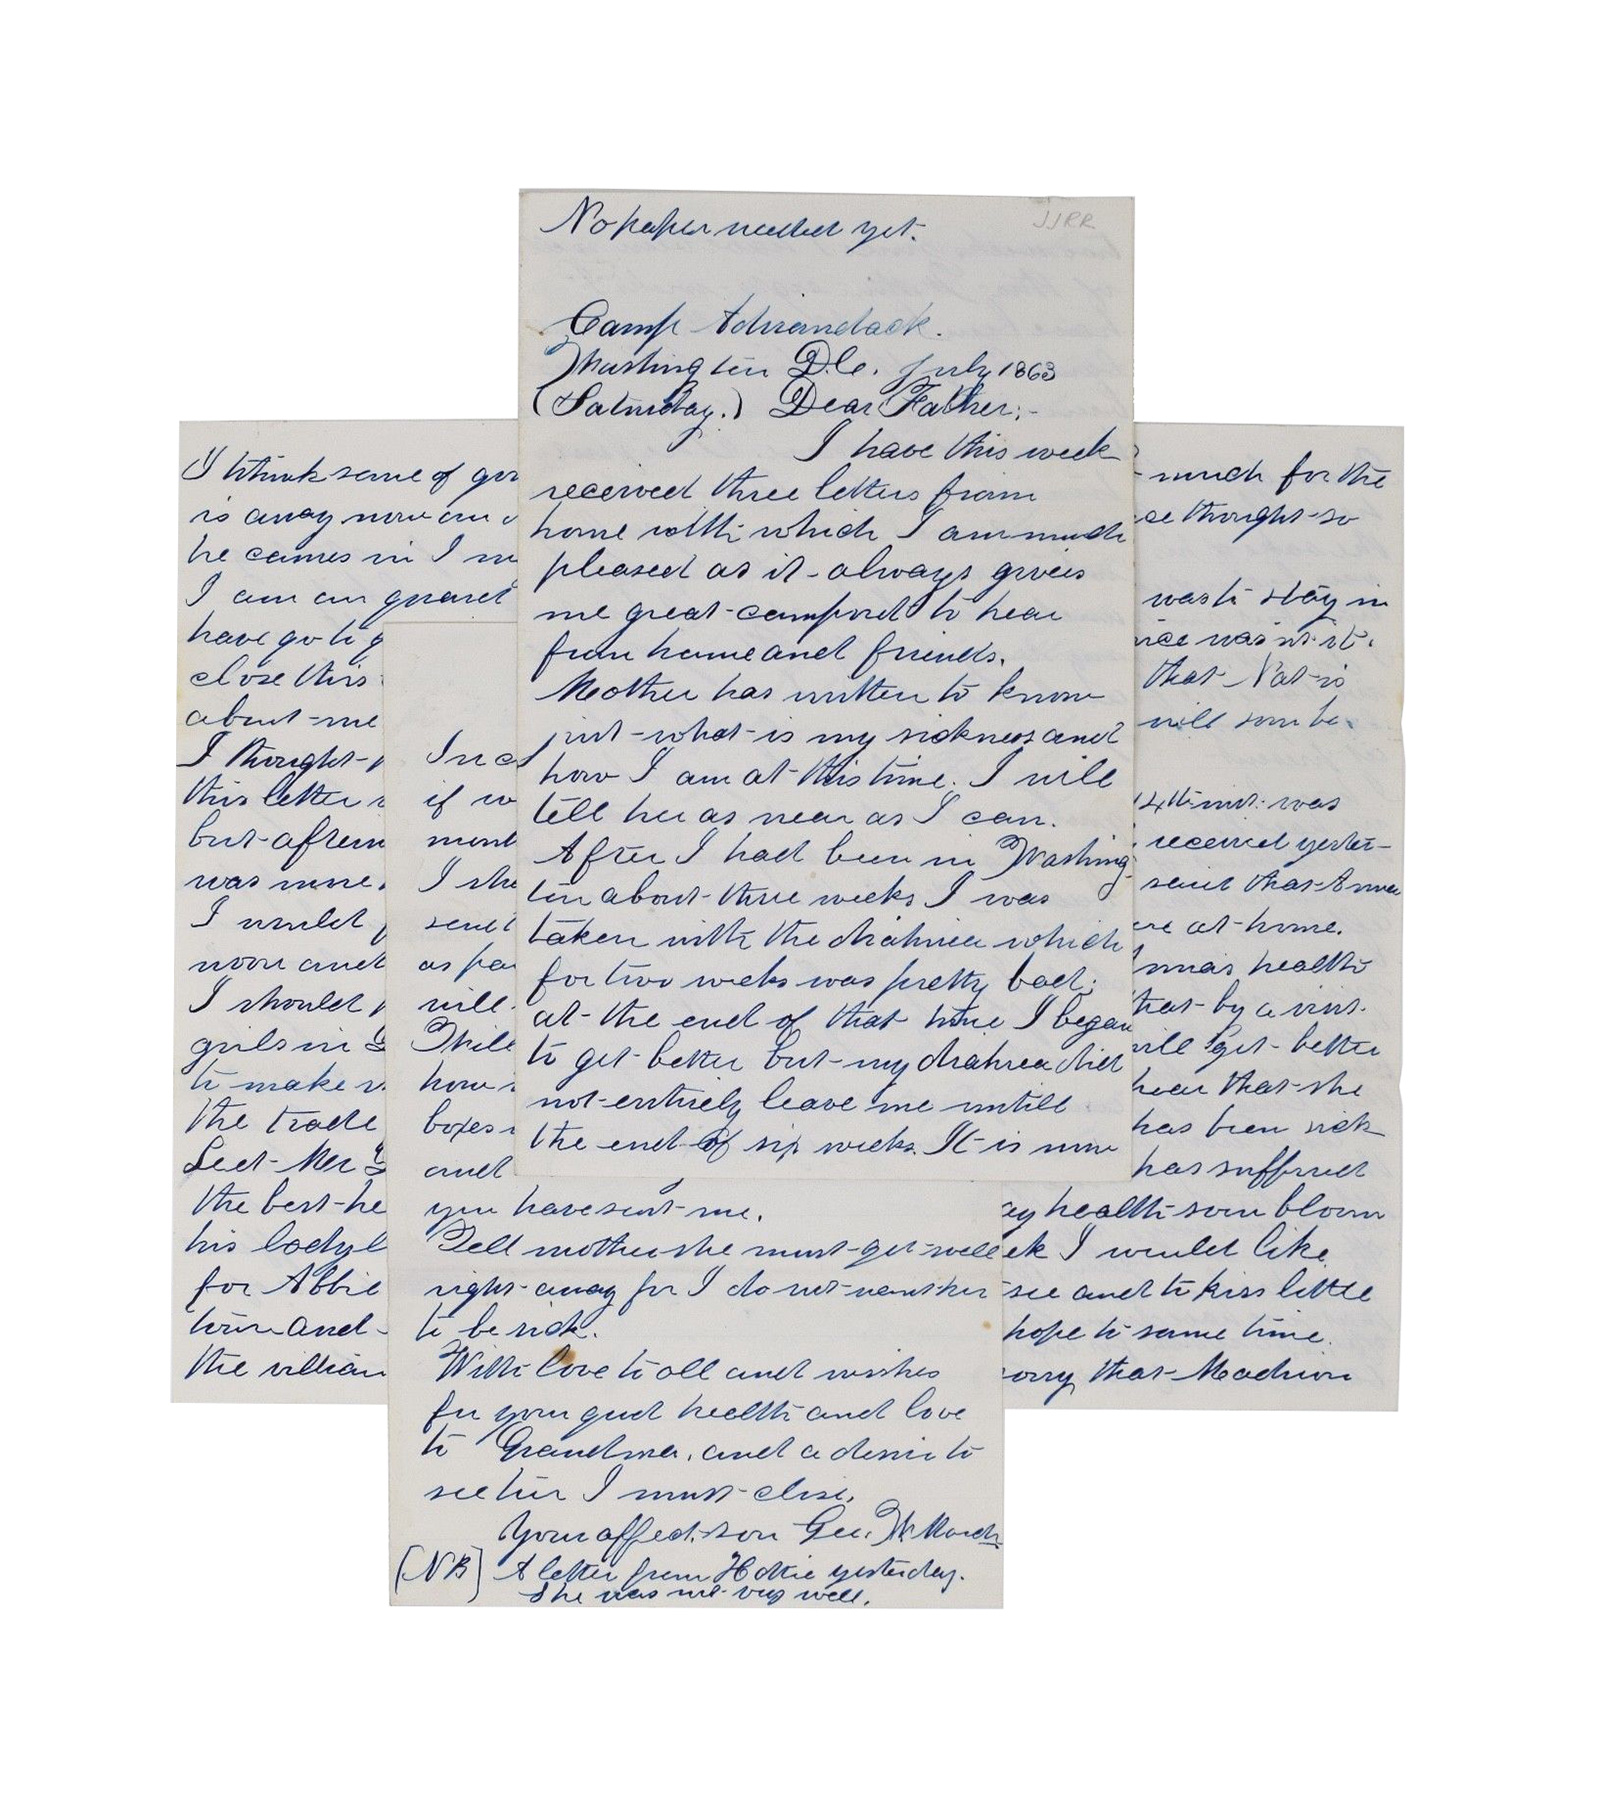 No paper needed yet.
JJRR
Camp Adirondack.
Washington D.C. July 1863
(Saturday.) Dear Father;-
I have this week
received three letters from
home with which I am much
pleased as it always gives
me great comfort to hear
from home and friends.
Mother has written to know
just what is my sickness and
how I am at this time. I will
tell her as near as I can.
After I had been in Washing
ton about three weeks I was
taken with the diahrea which
for two weeks was pretty bad;
at the end of that time I began
to get better but my diahrea did
not entirely leave me untill
the end of six weeks. It is now
I think some of
is away now on
he comes in I
I am on guard
have go to
close this
about me
I thought
this letter
but
was
I would
noon and
I should
girls in
to make
the trade
the best
his
for Abbie
town and
the villian
In
if
I
send
as
will.
how
boxes
and
you have sent me.
Tell mother she must get well
right away for I do not want her
to be sick.
With love to all and wishes
for your good health and love
to Grandma, and a desire to
see her I must close.
Your affect. son Geo. W. March
[NB] A letter from Hattie yesterday.
She was not very well.
much for the
thought so
was to stay in
was nt it.
that Nat is
will soon be
14th inst. was
received yester-
said that Anna
at home.
health
that by a visit.
will get better
hear that she
has been sick
has suffered
health soon bloom
I would like
see and to kiss little
hope to some time.
that Madison